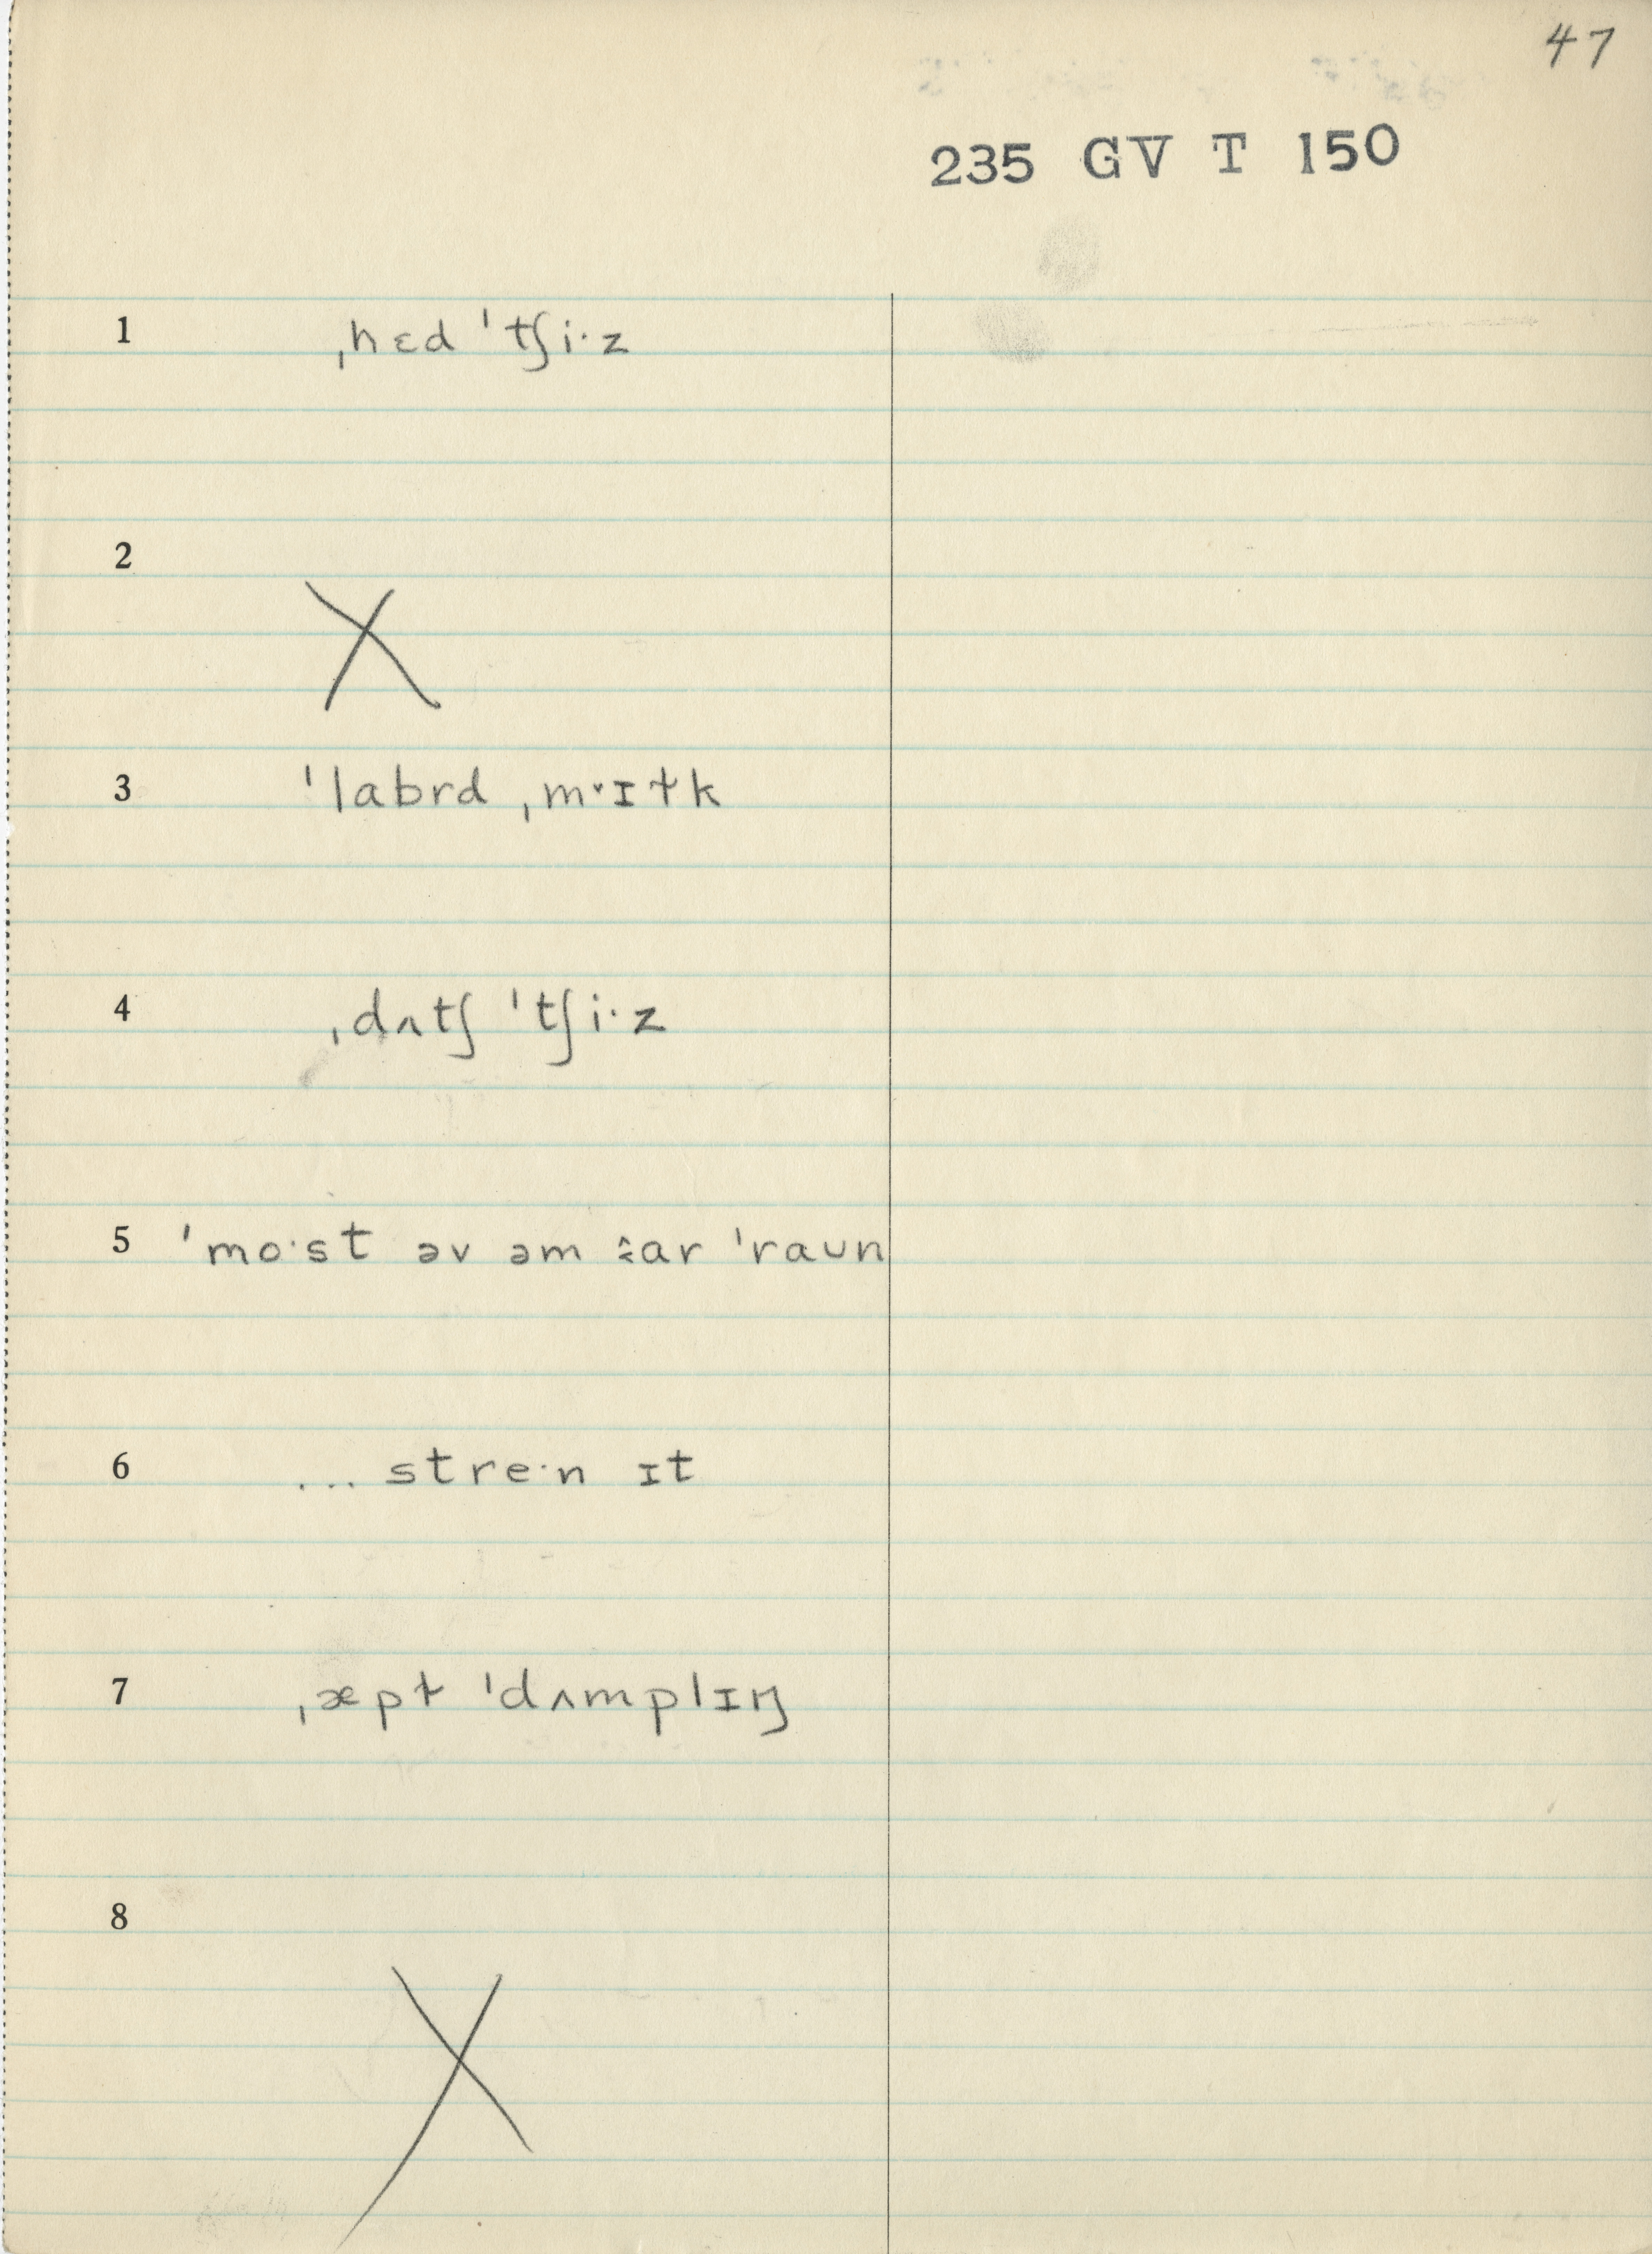 47
235 GV T 150
1 ˌhɛd ˈtʃi·z
2 X
3 ˈlabrd ˌmˑɪɫk
4 ˌdʌtʃ ˈtʃi·z
5 ˈmo·st əv əm ar ˈraʊn
6 ... stre·n ɪt
7 ˌæpɫ ˈdʌmplɪŋ
8 X